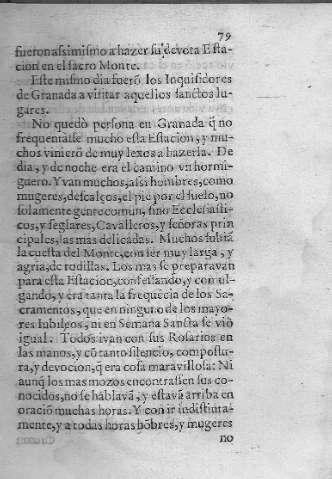 79
fueron assimismo a hazer su devota Esta-
cion en el sacro Monte.
Este mismo dia fuerō los Inquisidores
de Granada a visitar aquellos sanctos lu-
gares.
No quedò persona en Granada q̃ no
frequentasse mucho esta Estacion, y mu-
chos vinierō de muy lexos a hazerla. De
dia, y de noche era el camino vn hormi-
guero. Y van muchos, assi hombres, como
mugeres, descalços, el pie por el suelo, no
solamente gente comun, sino Ecclesiasti-
cos, y seglares, Cavalleros, y señoras prin
cipales, las mas delicadas. Muchos subiā
la cuesta del Monte, con ser muy larga, y
agria, de rodillas. Los mas se preparavan
para esta Estacion, confessando, y comul-
gando, y era tanta la frequēcia de los Sa-
cramentos, que en ninguno de los mayo-
res Iubileos, ni en Semana Sancta se viò
igual. Todos ivan con sus Rosarios en
las manos, y cō tanto silencio, compostu-
ra, y devocion, q̃ era cosa maravillosa: Ni
aunq̃ los mas mozos encontrassen sus co-
nocidos, no se hablavā, y estavā arriba en
oraciō muchas horas. Y con ir indistinta-
mente, y a todas horas hōbres, y mugeres
no